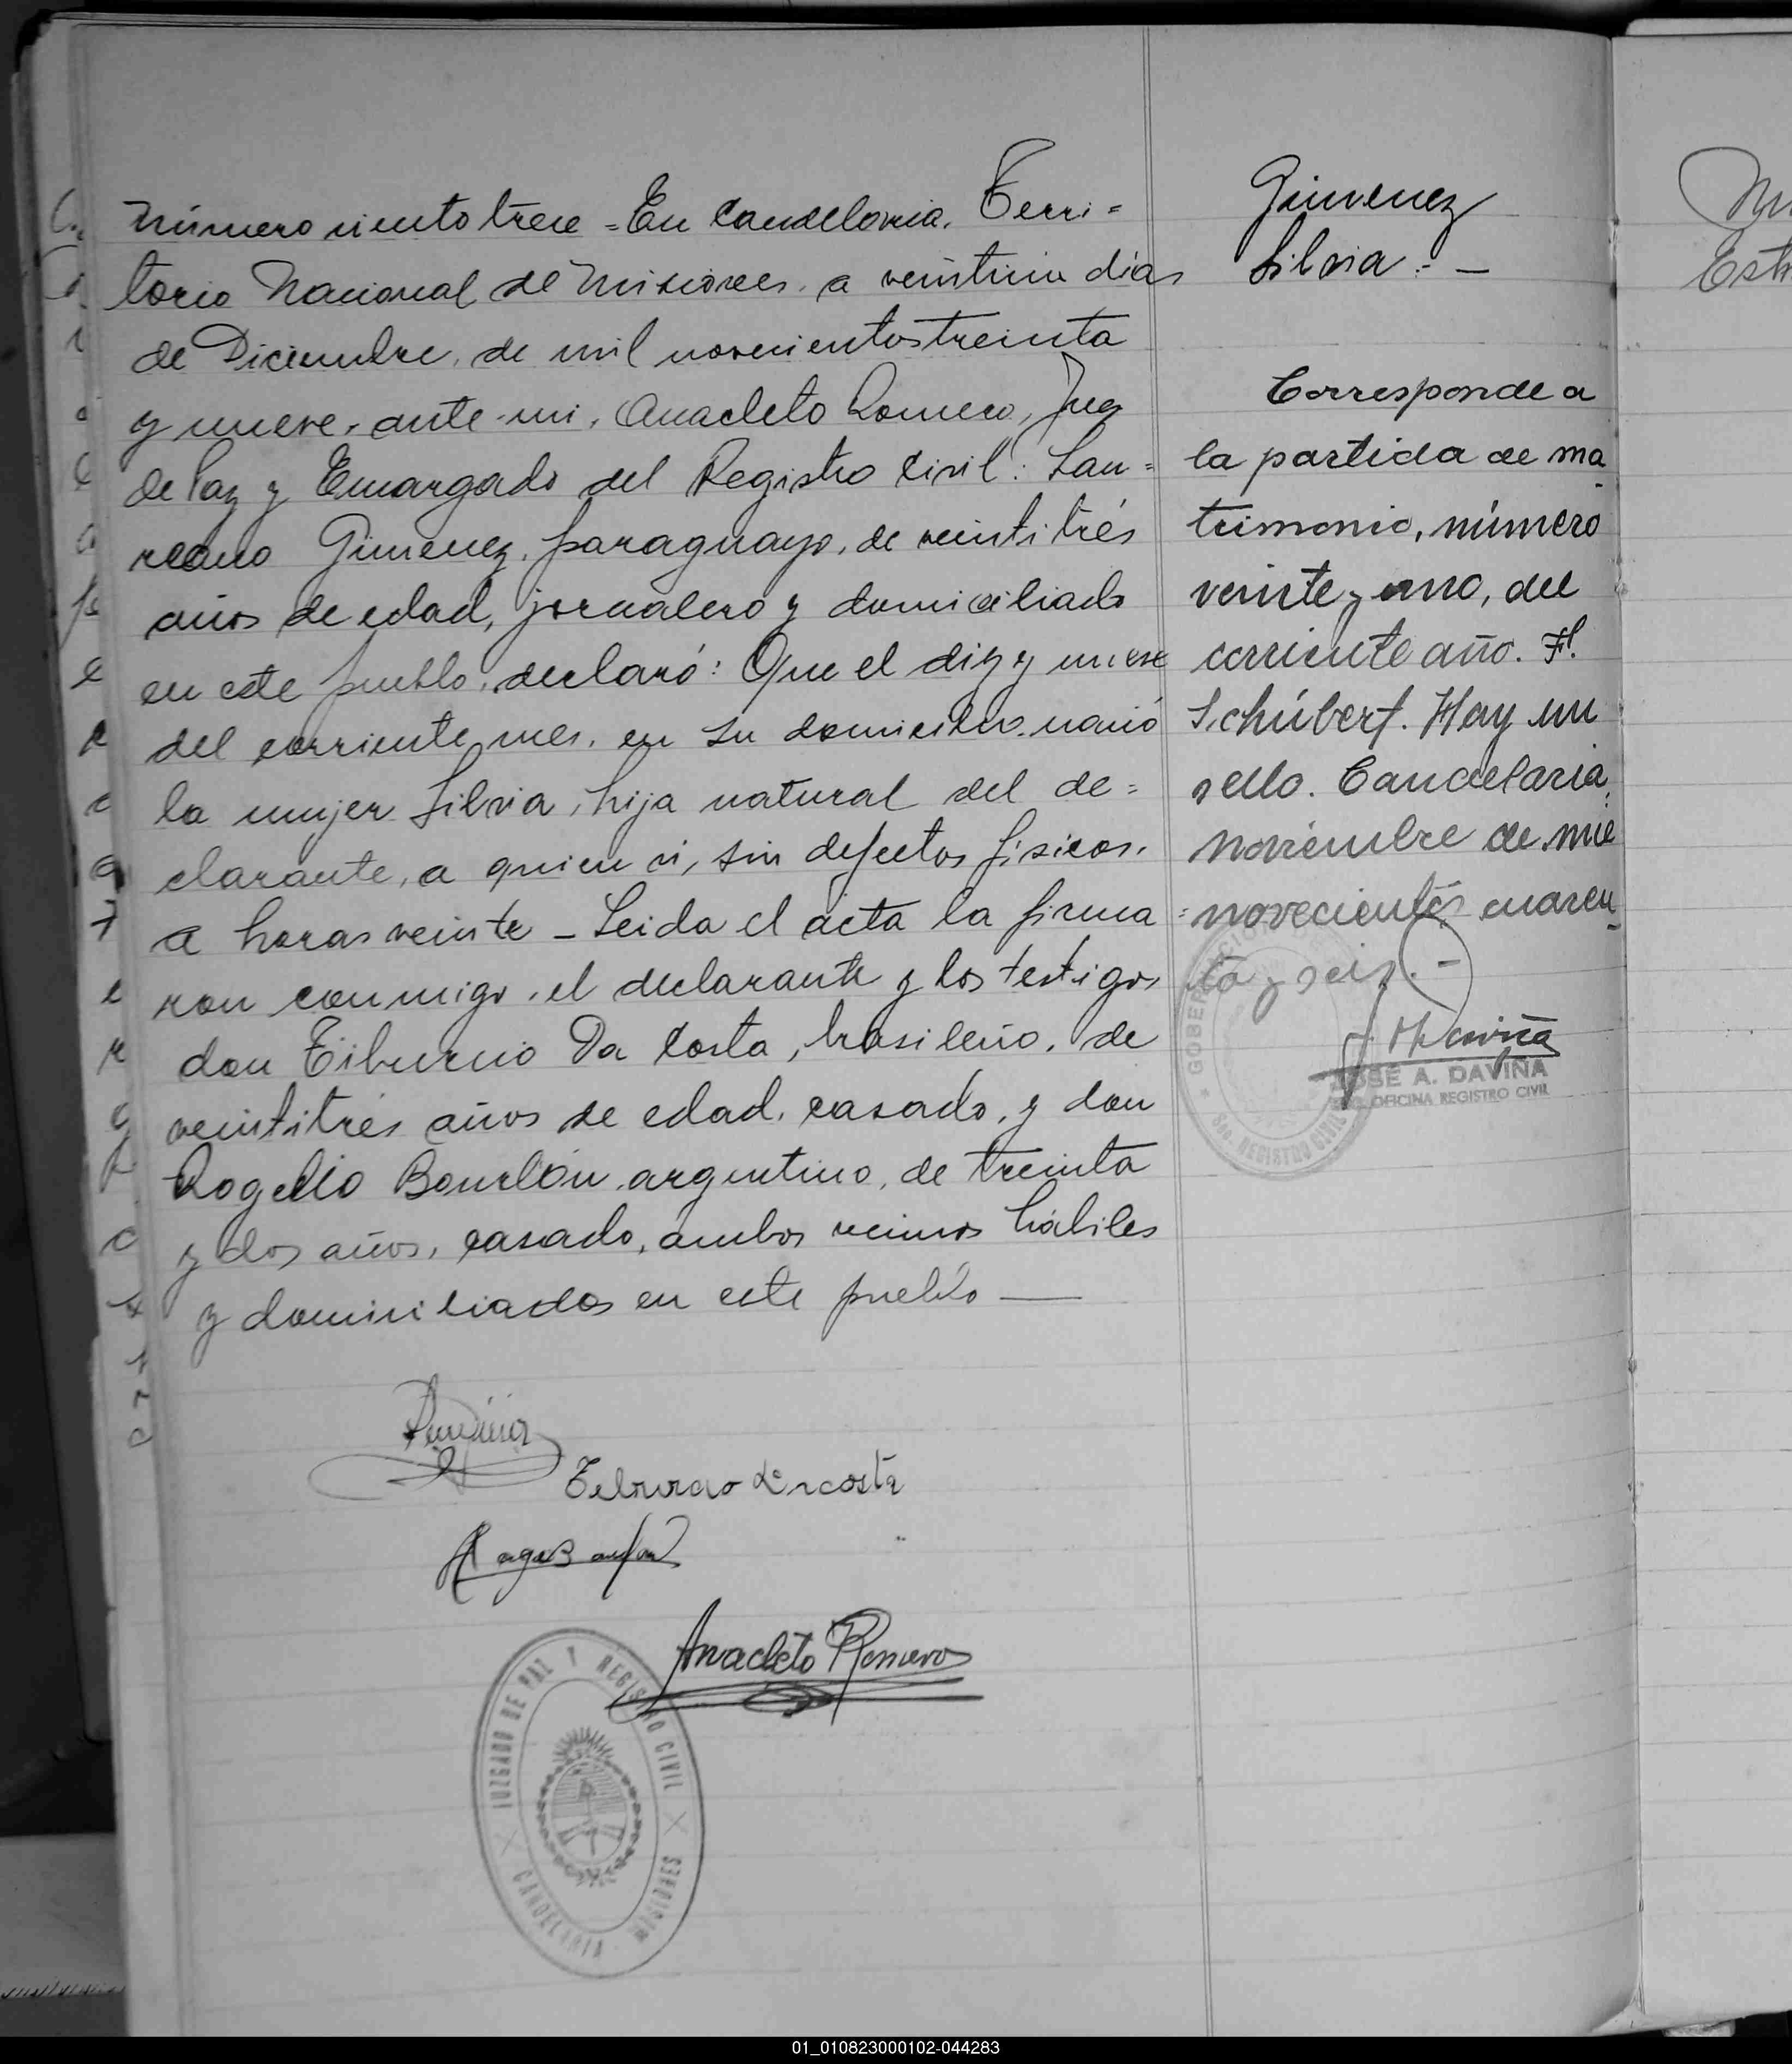 Número ciento trece = En Candelaria, Terri=
torio Nacional de Misiones, a veintiun días
de Diciembre, de mil novecientos treinta
y nueve, ante mi, Anacleto Romero, Juez
de Paz y Encargado del Registro Civil: Lau=
reano Gimenez, paraguayo, de veintitrés
años de edad, jornalero y domiciliado
en este pueblo, declaró: Que el diez y nueve
del corriente mes, en su domicilio, nació
la mujer Silvia, hija natural del de=
clarante, a quien vi, sin defectos físicos,
a horas veinte – Leida el acta la firma=
ron conmigo, el declarante y los testigos
don Tiburcio Da Costa, brasileño, de
veintitrés años de edad, casado, y don
Rogelio Bourlon, argentino, de treinta
y dos años, casado, ambos vecinos hábiles
y domiciliados en este pueblo —
Anacleto Romero
JUZGADO DE PAZ Y REGISTRO CIVIL
CANDELARIA MISIONES
Gimenez
Silvia = –
Corresponde a
la partida de ma
trimonio, número
veinte y uno, del
corriente año. Fl.
Schúbert. Hay un
sello. Candelaria,
noviembre de mil
novecientos cuaren
ta y seis. –
JOSÉ A. DAVIÑA
OFICINA REGISTRO CIVIL
REGISTRO CIVIL
01_010823000102-044283